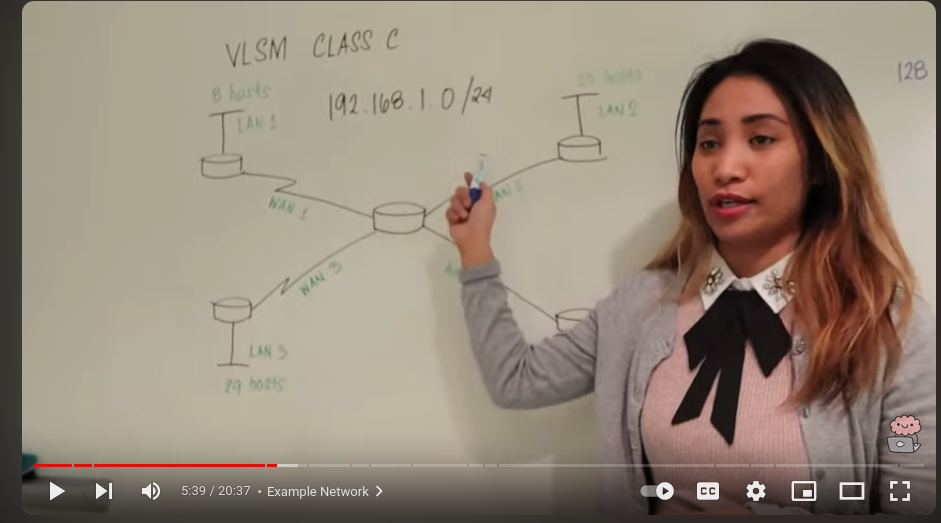 VLSM CLASS C
8 hosts
192.168.1.0/24
LAN 1
hosts
LAN 2
128
WAN 1
WAN 3
LAN 3
29 hosts
5:39 / 20:37 • Example Network >
CC